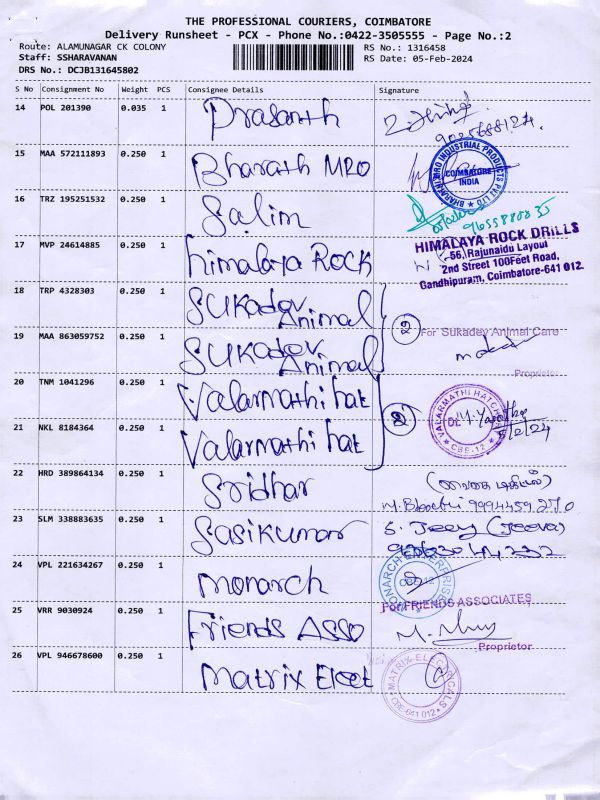 THE PROFESSIONAL COURIERS, COIMBATORE
Delivery Runsheet - PCX - Phone No.:0422-3505555 - Page No.:2
Route: ALAMUNAGAR CK COLONY
Staff: SSHARAVANAN
DRS No.: DCJB131645802
RS No.: 1316458
RS Date: 05-Feb-2024
S No Consignment No Weight PCS Consignee Details Signature
14 POL 201390 0.035 1 Prasanth
9025688124
15 MAA 572111893 0.250 1 Bharath MRO
BHARATH MRO INDUSTRIAL PRODUCTS PVT LTD
COIMBATORE
INDIA
16 TRZ 195251532 0.250 1 Salim
9655880835
17 MVP 24614885 0.250 1 himalaya Rock
HIMALAYA ROCK DRILLS
56, Rajunaidu Layout
2nd Street 100Feet Road,
Gandhipuram, Coimbatore-641 012.
18 TRP 4328303 0.250 1 Sukadev Animal
19 MAA 863059752 0.250 1 Sukadev Animal
2
For Sukadev Animal Care
Proprietor
20 TNM 1041296 0.250 1 Valarmathi hat
21 NKL 8184364 0.250 1 Valarmathi hat
2
VALARMATHI HATCHERY
CBE-12
5/2/24
22 HRD 389864134 0.250 1 Sridhar
9994459270
23 SLM 338883635 0.250 1 Sasikumar
S. Jeeva (Jeeva)
24 VPL 221634267 0.250 1 monarch
MONARCH ENTERPRISES
25 VRR 9030924 0.250 1 Friends Asso
For FRIENDS ASSOCIATES
Proprietor
26 VPL 946678600 0.250 1 Matrix Elect
MATRIX ELECTRICALS
CBE-641 012